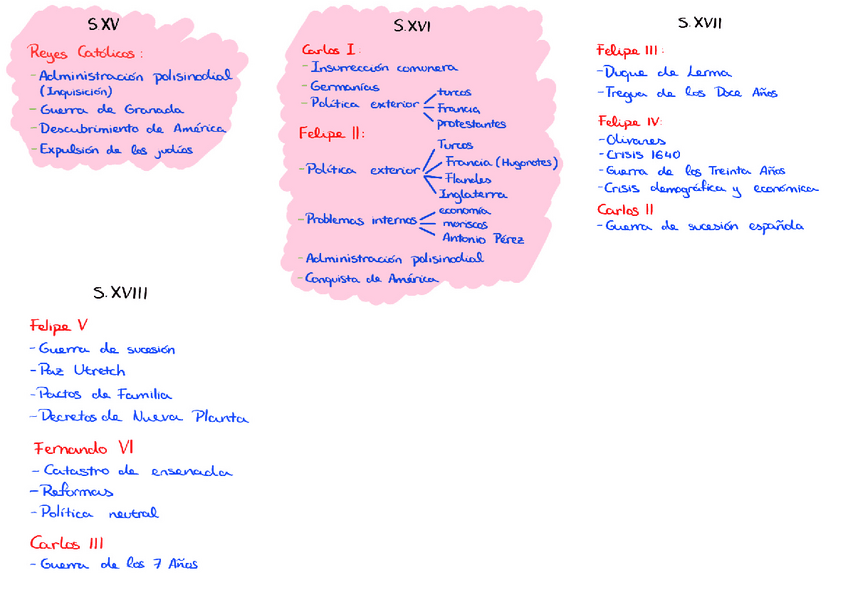 S.XV
Reyes Católicos:
-Administración polisinodial
(Inquisición)
-Guerra de Granada
-Descubrimiento de América
-Expulsión de los judíos
S.XVI
Carlos I:
-Insurrección comunera
-Germanías
-Política exterior
turcos
Francia
protestantes
Felipe II:
-Política exterior
Turcos
Francia (Hugonotes)
Flandes
Inglaterra
-Problemas internos
economía
moriscos
Antonio Pérez
-Administración polisinodial
-Conquista de América
S.XVII
Felipe III:
-Duque de Lerma
-Tregua de los Doce Años
Felipe IV:
-Olivares
-Crisis 1640
-Guerra de los Treinta Años
-Crisis demográfica y económica
Carlos II
-Guerra de sucesión española
S.XVIII
Felipe V
-Guerra de sucesión
-Paz Utretch
-Pactos de Familia
-Decretos de Nueva Planta
Fernando VI
-Catastro de ensenada
-Reformas
-Política neutral
Carlos III
-Guerra de los 7 Años